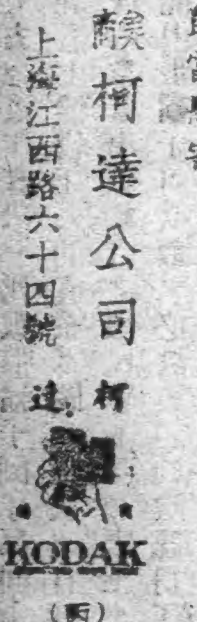 美商柯達公司
上海江西路六十四號
柯達
KODAK
(丙)